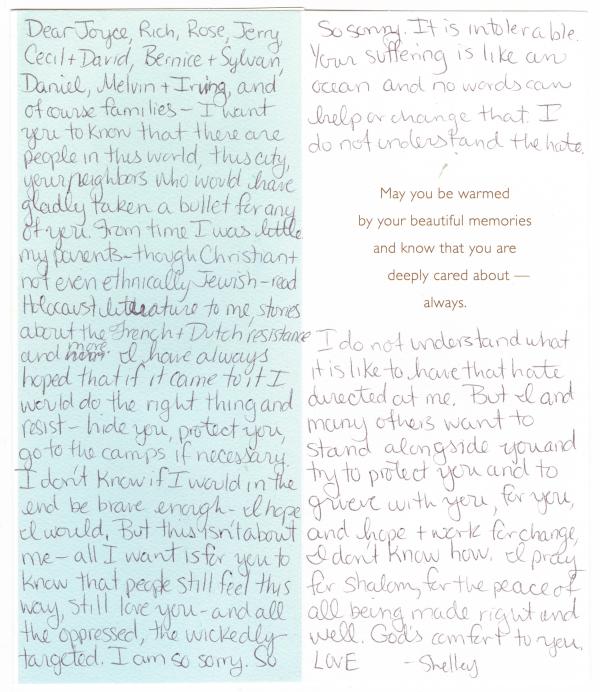 Dear Joyce, Rich, Rose, Jerry,
Cecil + David, Bernice + Sylvan,
Daniel, Melvin + Irving, and
of course families – I want
you to know that there are
people in this world, this city,
your neighbors who would have
gladly taken a bullet for any
of you. From time I was little
my parents – though Christian +
not even ethnically Jewish – read
Holocaust literature to me, stories
about the French + Dutch resistance
and more. I have always
hoped that if it came to it I
would do the right thing and
resist – hide you, protect you,
go to the camps if necessary.
I don't know if I would in the
end be brave enough – I hope
I would. But this isn't about
me – all I want is for you to
know that people still feel this
way, still love you – and all
the oppressed, the wickedly
targeted. I am so sorry. So
So sorry. It is intolerable.
Your suffering is like an
ocean and no words can
help or change that. I
do not understand the hate.
May you be warmed
by your beautiful memories
and know that you are
deeply cared about —
always.
I do not understand what
it is like to have that hate
directed at me. But I and
many others want to
stand alongside you and
try to protect you and to
grieve with you, for you,
and hope + work for change,
I don't know how. I pray
for Shalom, for the peace of
all being made right and
well. God's comfort to you.
LOVE – Shelley